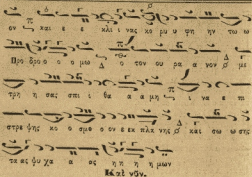 ον ς και ε ε κλι νας κο ρυ φη ην τω ω
Προ δρο ο ο ο μω ο τον ου ρα α νον με
τρη η σας σπι ι θα α μη ι να ε πι
στρε ψης κο ο σμο ον εκ πλα νης και σω ω σης
τα ας ψυ χα α ας η η η μων
Και νῦν.